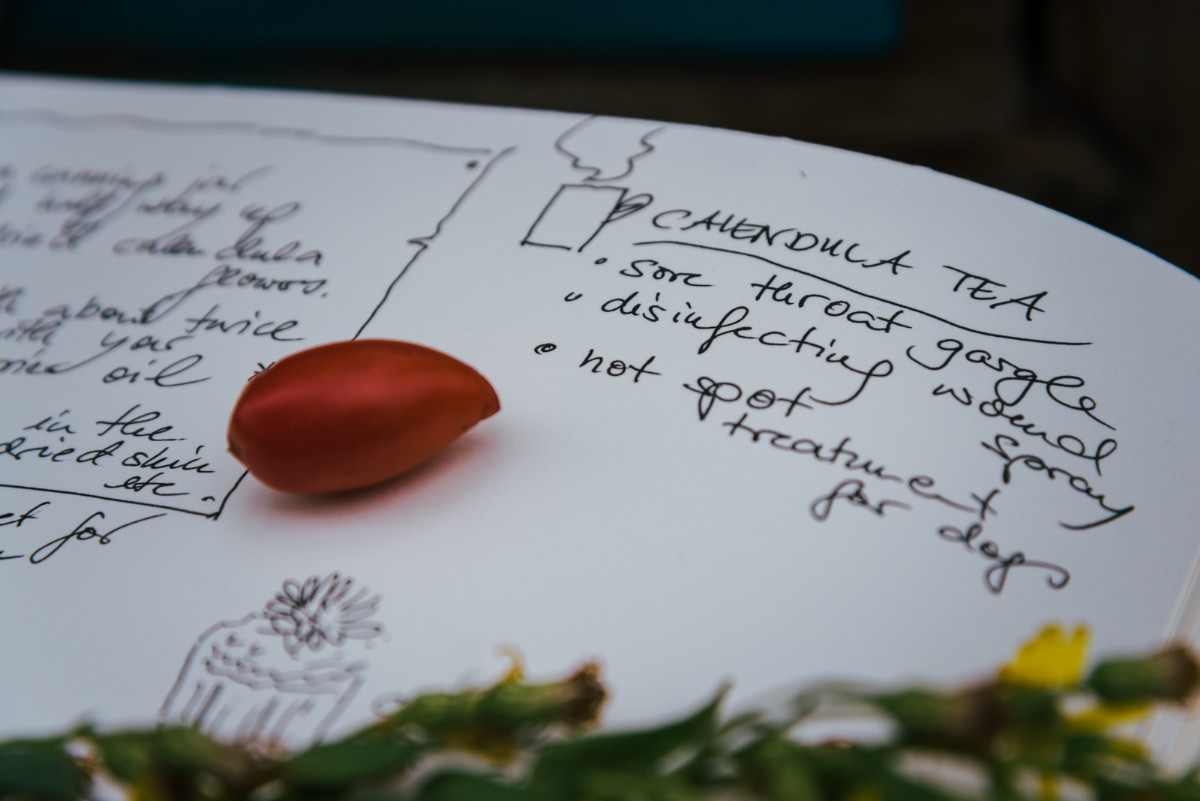 canning jar
up
dried calendula
flowers.
about twice
with your
oil
in the
dried skin
etc.
for
CALENDULA TEA
• sore throat gargle
• disinfecting wound
spray
• hot spot
treatment
for dogs